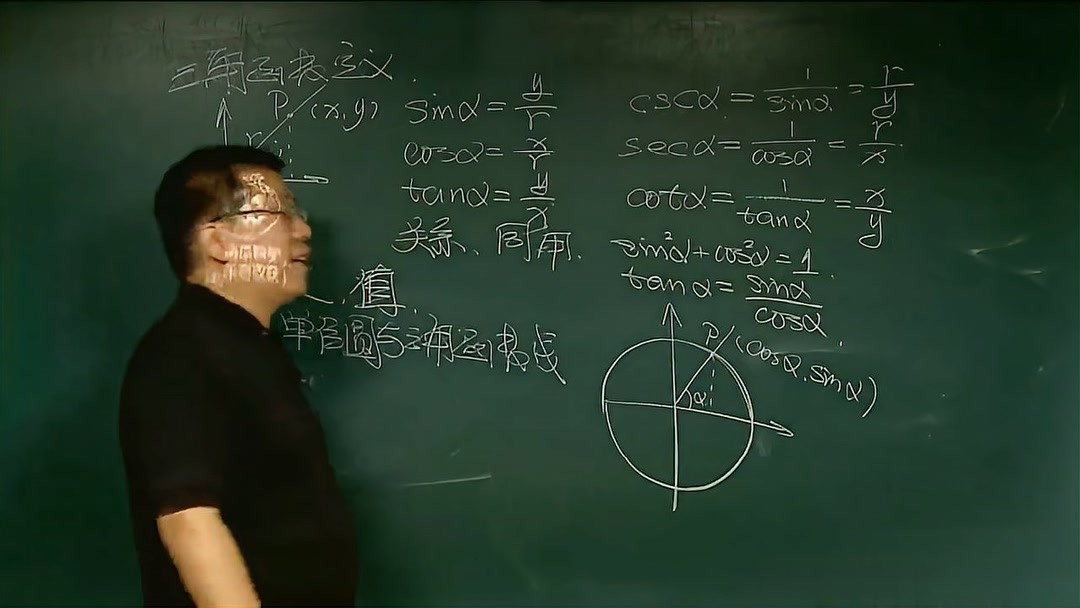 三角函数定义.
P (x,y)
r
sinα = y/r
cosα = x/r
tanα = y/x
关系、同角.
值.
单位圆与三角函数线
cscα = 1/sinα = r/y
secα = 1/cosα = r/x.
cotα = 1/tanα = x/y
sin²α + cos²α = 1.
tanα = sinα/cosα.
P (cosα, sinα)
α